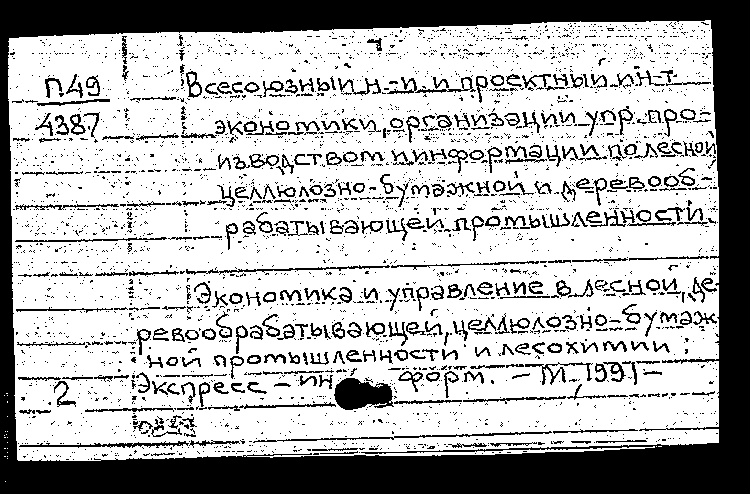 П49
4387
Всесоюзный н.-и. и проектный ин-т
экономики, организации упр. про-
изводством и информации по лесной
целлюлозно-бумажной и деревооб-
рабатывающей промышленности.
Экономика и управление в лесной, де-
ревообрабатывающей, целлюлозно-бумаж-
ной промышленности и лесохимии:
Экспресс-ин форм. - М., 1991-
2